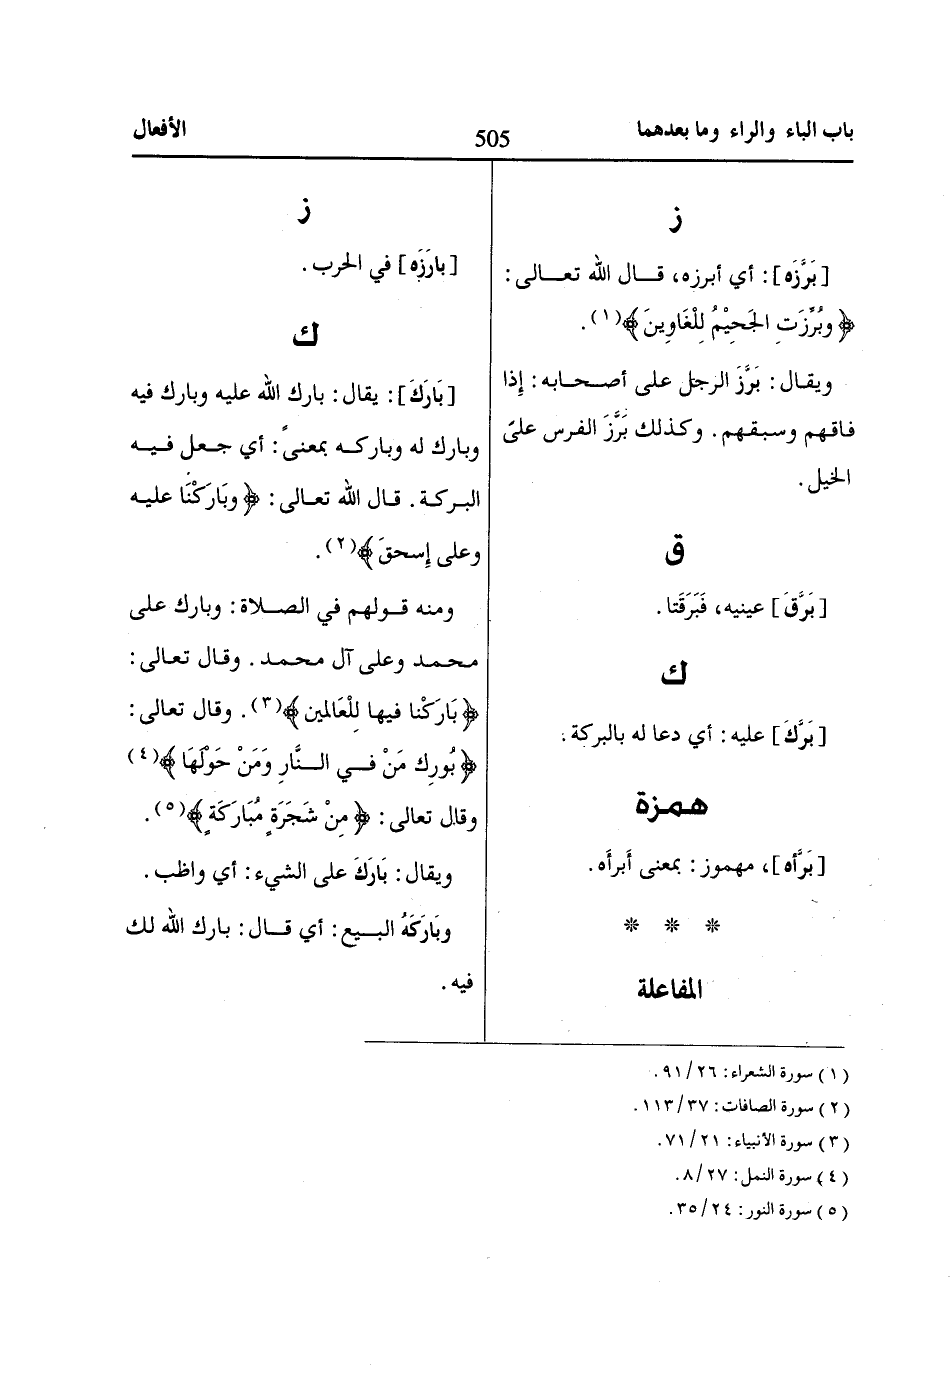 باب الباء والراء وما بعدهما
505
الأفعال
ز
[بَرَّزَه]: أي أبرزه، قال الله تعالى:
﴿وبُرِّزَتِ الجَحيْمُ لِلْغَاوِينَ﴾(١).
ويقال: بَرَّزَ الرجل على أصحابه: إذا
فاقهم وسبقهم. وكذلك بَرَّزَ الفرس على
الخيل.
ق
[بَرَّقَ] عينيه، فَبَرَقَتا.
ك
[بَرَّكَ] عليه: أي دعا له بالبركة.
همزة
[بَرَّأه]، مهموز: بمعنى أَبرأَه.
* * *
المفاعلة
ز
[بارَزَه] في الحرب.
ك
[بَارَكَ]: يقال: بارك الله عليه وبارك فيه
وبارك له وباركه بمعنىً: أي جعل فيه
البركة. قال الله تعالى: ﴿وبَارَكْنَا عليه
وعلى إسحقَ﴾(٢).
ومنه قولهم في الصلاة: وبارك على
محمد وعلى آل محمد. وقال تعالى:
﴿بَارَكْنا فيها لِلْعَالمين﴾(٣). وقال تعالى:
﴿بُورِك مَنْ في النَّارِ وَمَنْ حَوْلَهَا﴾(٤)
وقال تعالى: ﴿مِنْ شَجَرَةٍ مُبَارَكَةٍ﴾(٥).
ويقال: بَارَكَ على الشيء: أي واظب.
وبَارَكَهُ البيع: أي قال: بارك الله لك
فيه.
(١) سورة الشعراء: ٢٦/ ٩١.
(٢) سورة الصافات: ٣٧/ ١١٣.
(٣) سورة الأنبياء: ٢١/ ٧١.
(٤) سورة النمل: ٢٧/ ٨.
(٥) سورة النور: ٢٤/ ٣٥.